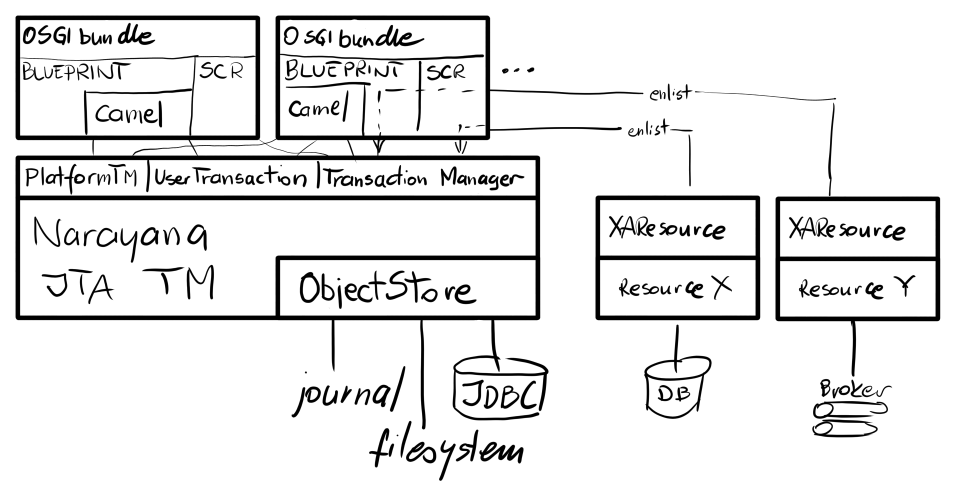 OSGI bundle
BLUEPRINT
SCR
Camel
OSGI bundle
BLUEPRINT
SCR
Camel
...
enlist
enlist
PlatformTM
UserTransaction
Transaction Manager
Narayana
JTA TM
ObjectStore
XAResource
Resource X
XAResource
Resource Y
journal
filesystem
JDBC
DB
Broker